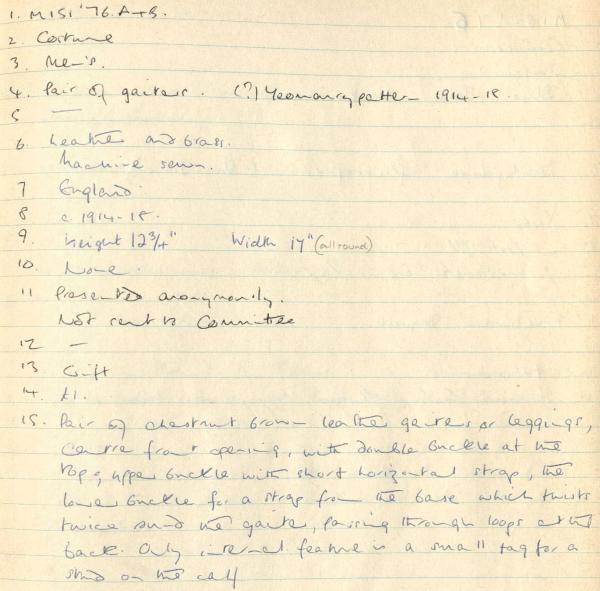 1. MISI '76. A+B.
2. Costume
3. Men's.
4. Pair of gaiters. (?) Yeomanry pattern 1914-18.
5 —
6. Leather and brass.
Machine sewn.
7 England.
8 c. 1914-18.
9. Height 12 3/4" Width 17" (all round)
10. None.
11 Presented anonymously.
Not sent to Committee
12 —
13 Gift
14. £1.
15. Pair of chestnut brown leather gaiters or leggings,
centre front opening, with double buckle at the
top, upper buckle with short horizontal strap, the
lower buckle for a strap from the base which twists
twice round the gaiter, passing through loops at the
back. Only internal feature is a small tag for a
stud on the calf